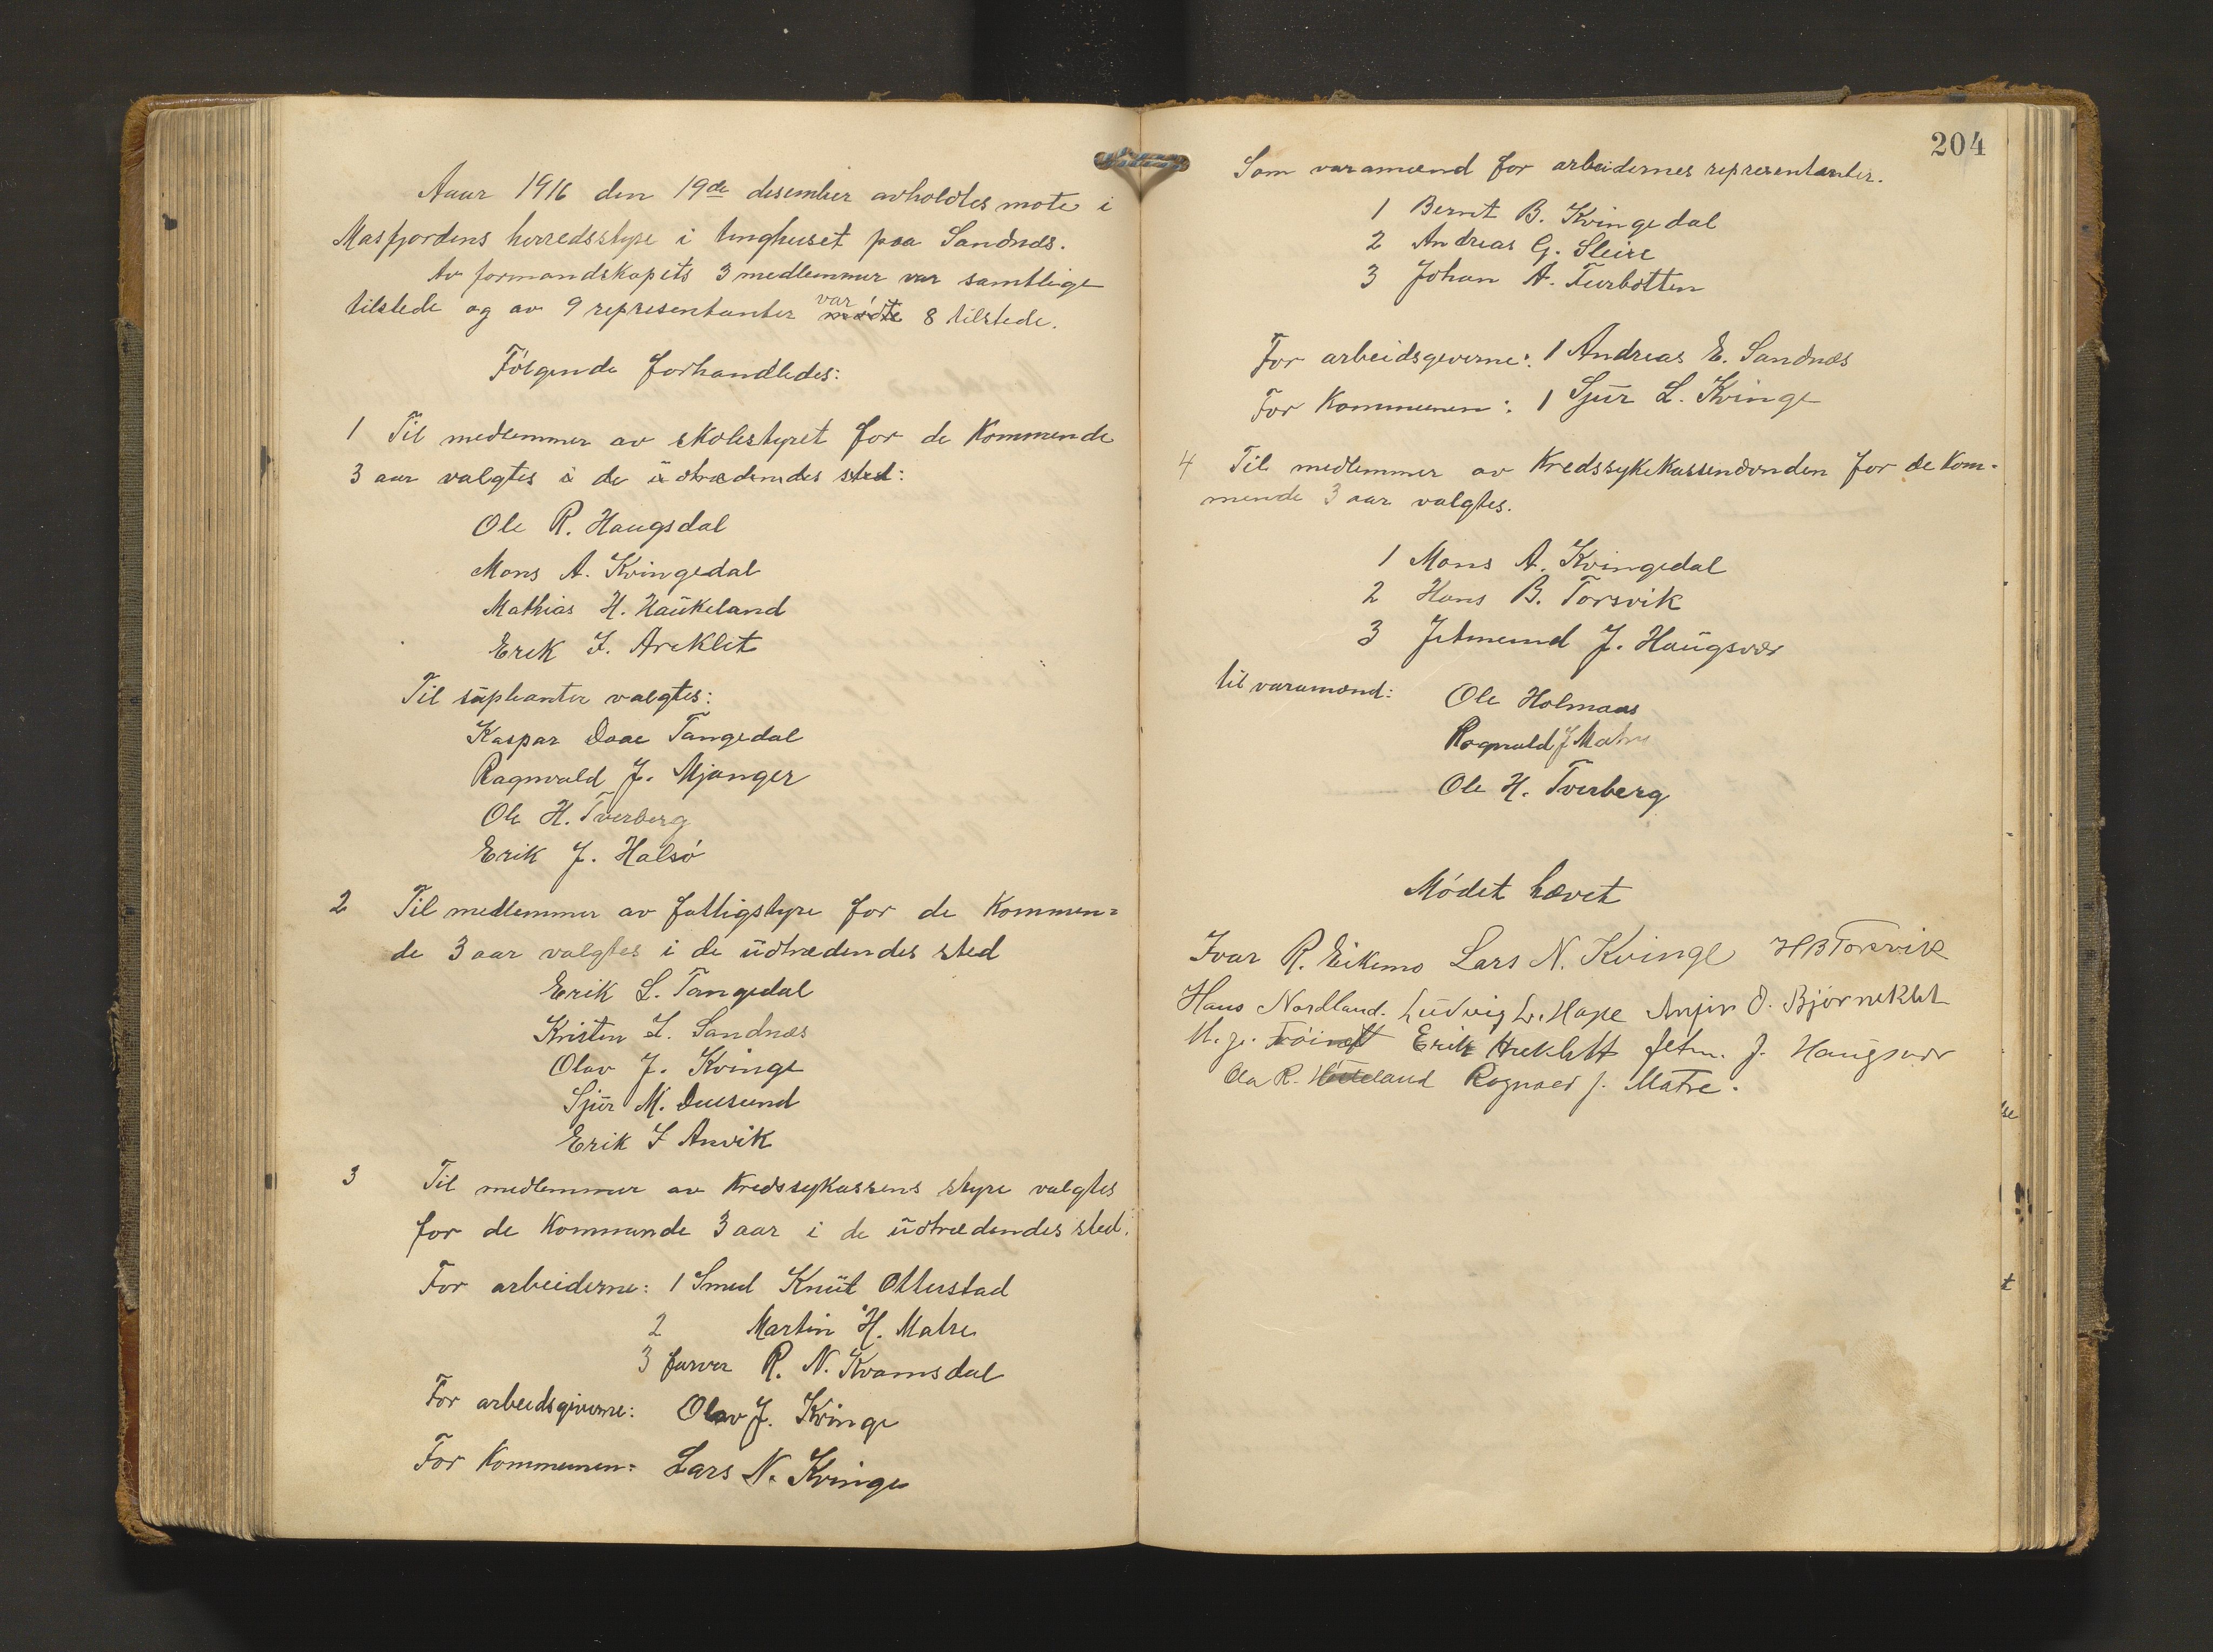 Aaar 1916 den 19de desember avholdtes møte i
Masfjordens herredsstyre i tinghuset paa Sandnæs.
Av formandskapets 3 medlemmer var samtlige
tilstede og av 9 representanter var mødte 8 tilstede.
Følgende forhandledes:
1 Til medlemmer av skolestyret for de kommende
3 aar valgtes i de utrædendes sted:
Ole R. Haugsdal
Mons A. Kvingedal
Mathias H. Haukeland
Erik I. Areklet
Til supleanter valgtes:
Kaspar Daae Tangedal
Ragnvald J. Mjanger
Ole H. Tverberg
Erik J. Halsø
2 Til medlemmer av fattigstyre for de kommen=
de 3 aar valgtes i de udtrædendes sted
Erik L. Tangedal
Kristen I. Sandnæs
Olav J. Kvinge
Sjur M. Duesund
Erik I Anvik
3 Til medlemmer av Kredssykassens styre valgtes
for de kommende 3 aar i de udtrædendes sted.
For arbeiderne: 1 Smed Knut Otterstad
2 Martin H. Matre
3 farver R. N. Kvamsdal
For arbeidsgiverne: Olav J. Kvinge
For Kommunen: Lars N. Kvinge
204
Som varamænd for arbeidernes representanter.
1 Bernt B. Kvingedal
2 Andreas G. Sleire
3 Johan A. Furbotten
For arbeidsgeverne: 1 Andreas E. Sandnæs
For Kommunen: 1 Sjur L. Kvinge
4 Til medlemmer av Kredssykekassendnden for de kom-
mende 3 aar valgtes.
1 Mons A. Kvingedal
2 Hans B. Torsvik
3 Jetmund J. Haugsvær
til varamænd: Ole Holmaas
Rognald J Matre
Ole H. Tverberg
Mødet hævet
Ivar R. Eikemo Lars N. Kvinge H B Torsvik
Hans Nordland. Ludvig L. Hope Anfin O. Bjørneklet
M. J. Erik Areklett Jetm. J. Haugsvær
Ola R. Rognald J. Matre.